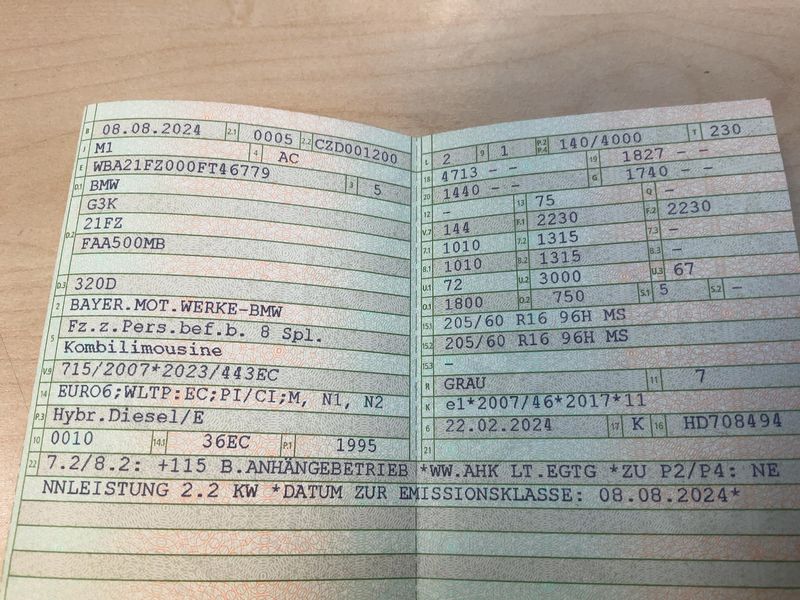 B 08.08.2024 2.1 0005 2.2 CZD001200
J M1 4 AC
E WBA21FZ000FT46779
D.1 BMW 3 5
D.2 G3K
21FZ
FAA500MB
D.3 320D
2 BAYER.MOT.WERKE-BMW
5 Fz.z.Pers.bef.b. 8 Spl.
Kombilimousine
V.9 715/2007*2023/443EC
14 EURO6;WLTP:EC;PI/CI;M, N1, N2
P.3 Hybr.Diesel/E
10 0010 14.1 36EC P.1 1995
L 2 9 1 P.2 P.4 140/4000 T 230
18 4713 - - 19 1827 - -
20 1440 - - G 1740 - -
12 - 13 75 Q -
V.7 144 F.1 2230 F.2 2230
7.1 1010 7.2 1315 7.3 -
8.1 1010 8.2 1315 8.3 -
U.1 72 U.2 3000 U.3 67
O.1 1800 O.2 750 S.1 5 S.2 -
15.1 205/60 R16 96H MS
15.2 205/60 R16 96H MS
15.3 -
R GRAU 11 7
K e1*2007/46*2017*11
6 22.02.2024 17 K 16 HD708494
21
22 7.2/8.2: +115 B.ANHÄNGEBETRIEB *WW.AHK LT.EGTG *ZU P2/P4: NE
NNLEISTUNG 2.2 KW *DATUM ZUR EMISSIONSKLASSE: 08.08.2024*